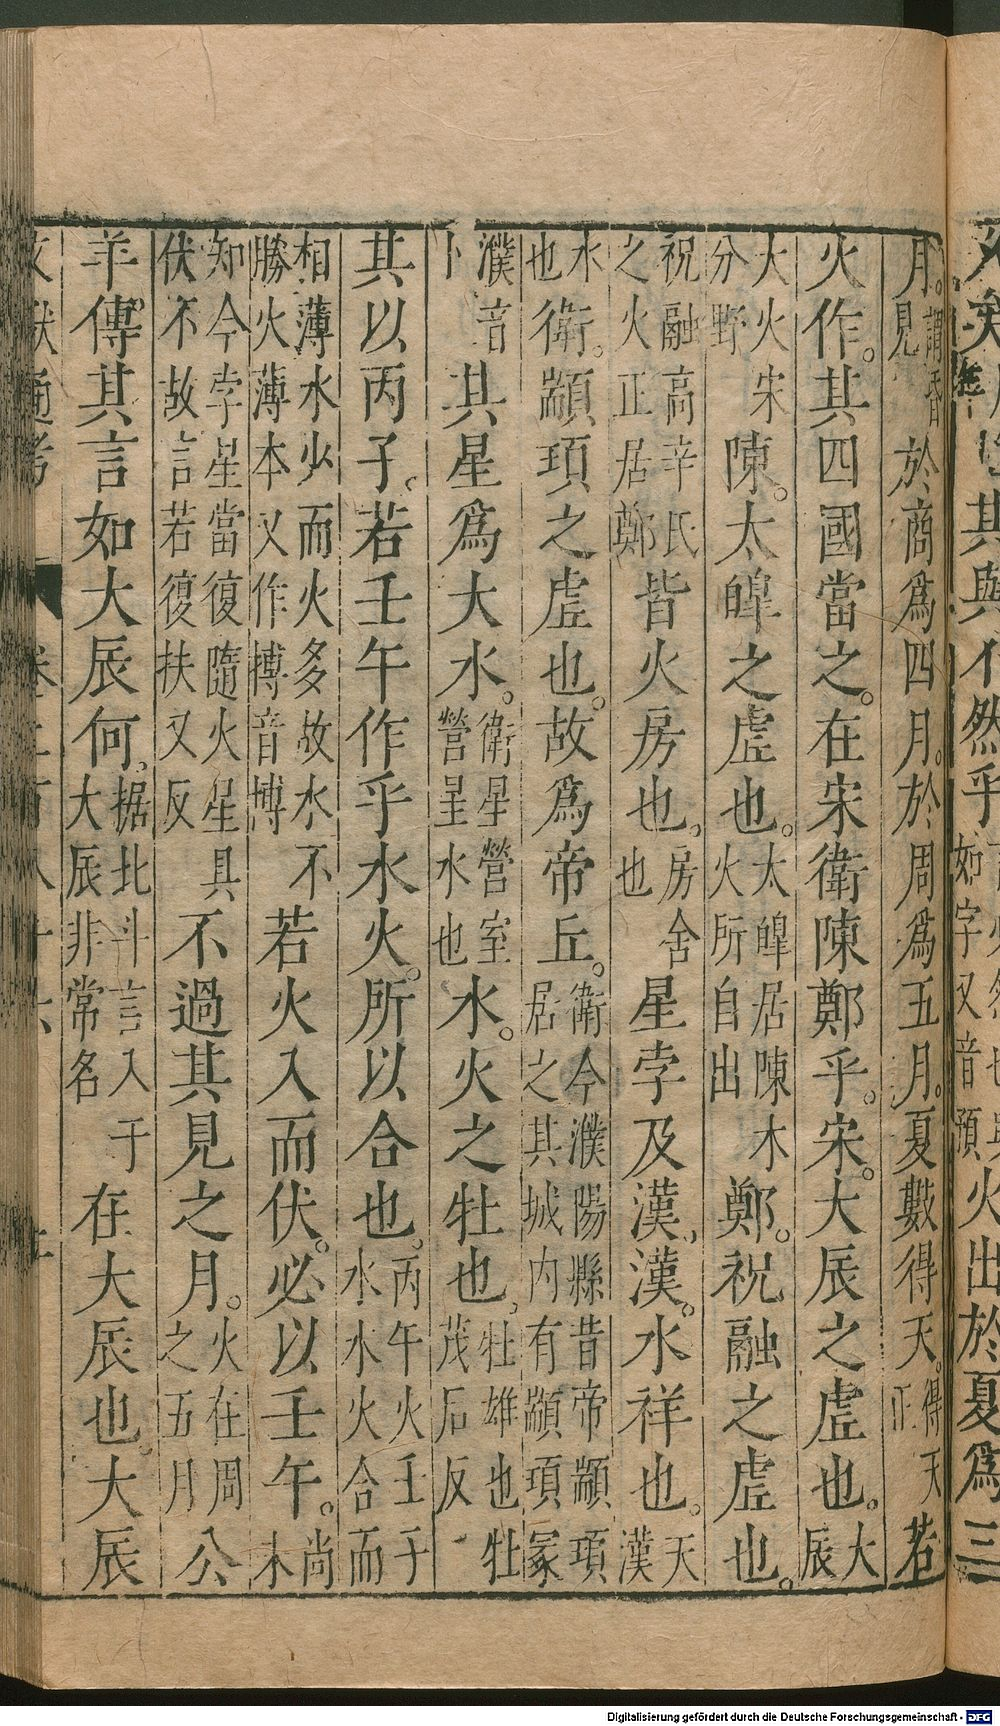 其與不然乎如字又音預火出於夏爲三
月。謂昏見於商爲四月。於周爲五月。夏數得天。得天正若
火作。其四國當之。在宋衛陳鄭乎。宋。大辰之虛也。大辰
大火宋分野陳。太皥之虛也。太皥居陳木火所自出鄭。祝融之虛也。
祝融高辛氏之火正居鄭皆火房也。房舍也星孛及漢。漢。水祥也。天漢
水也衛。顓頊之虛也。故爲帝丘。衛今濮陽縣昔帝顓頊居之其城內有顓頊冢
濮音卜其星爲大水。衛星營室營星水也水。火之牡也。牡雄也牡茂后反
其以丙子。若壬午作乎水火。所以合也。丙午火壬子水水火合而
相薄水少而火多故水不勝火薄本又作搏音博若火入而伏。必以壬午。尚未
知今孛星當復隨火星具伏不故言若復扶又反不過其見之月。火在周之五月公
羊傳其言如大辰何。据北斗言入于大辰非常名在大辰也。大辰
Digitalisierung gefördert durch die Deutsche Forschungsgemeinschaft - DFG